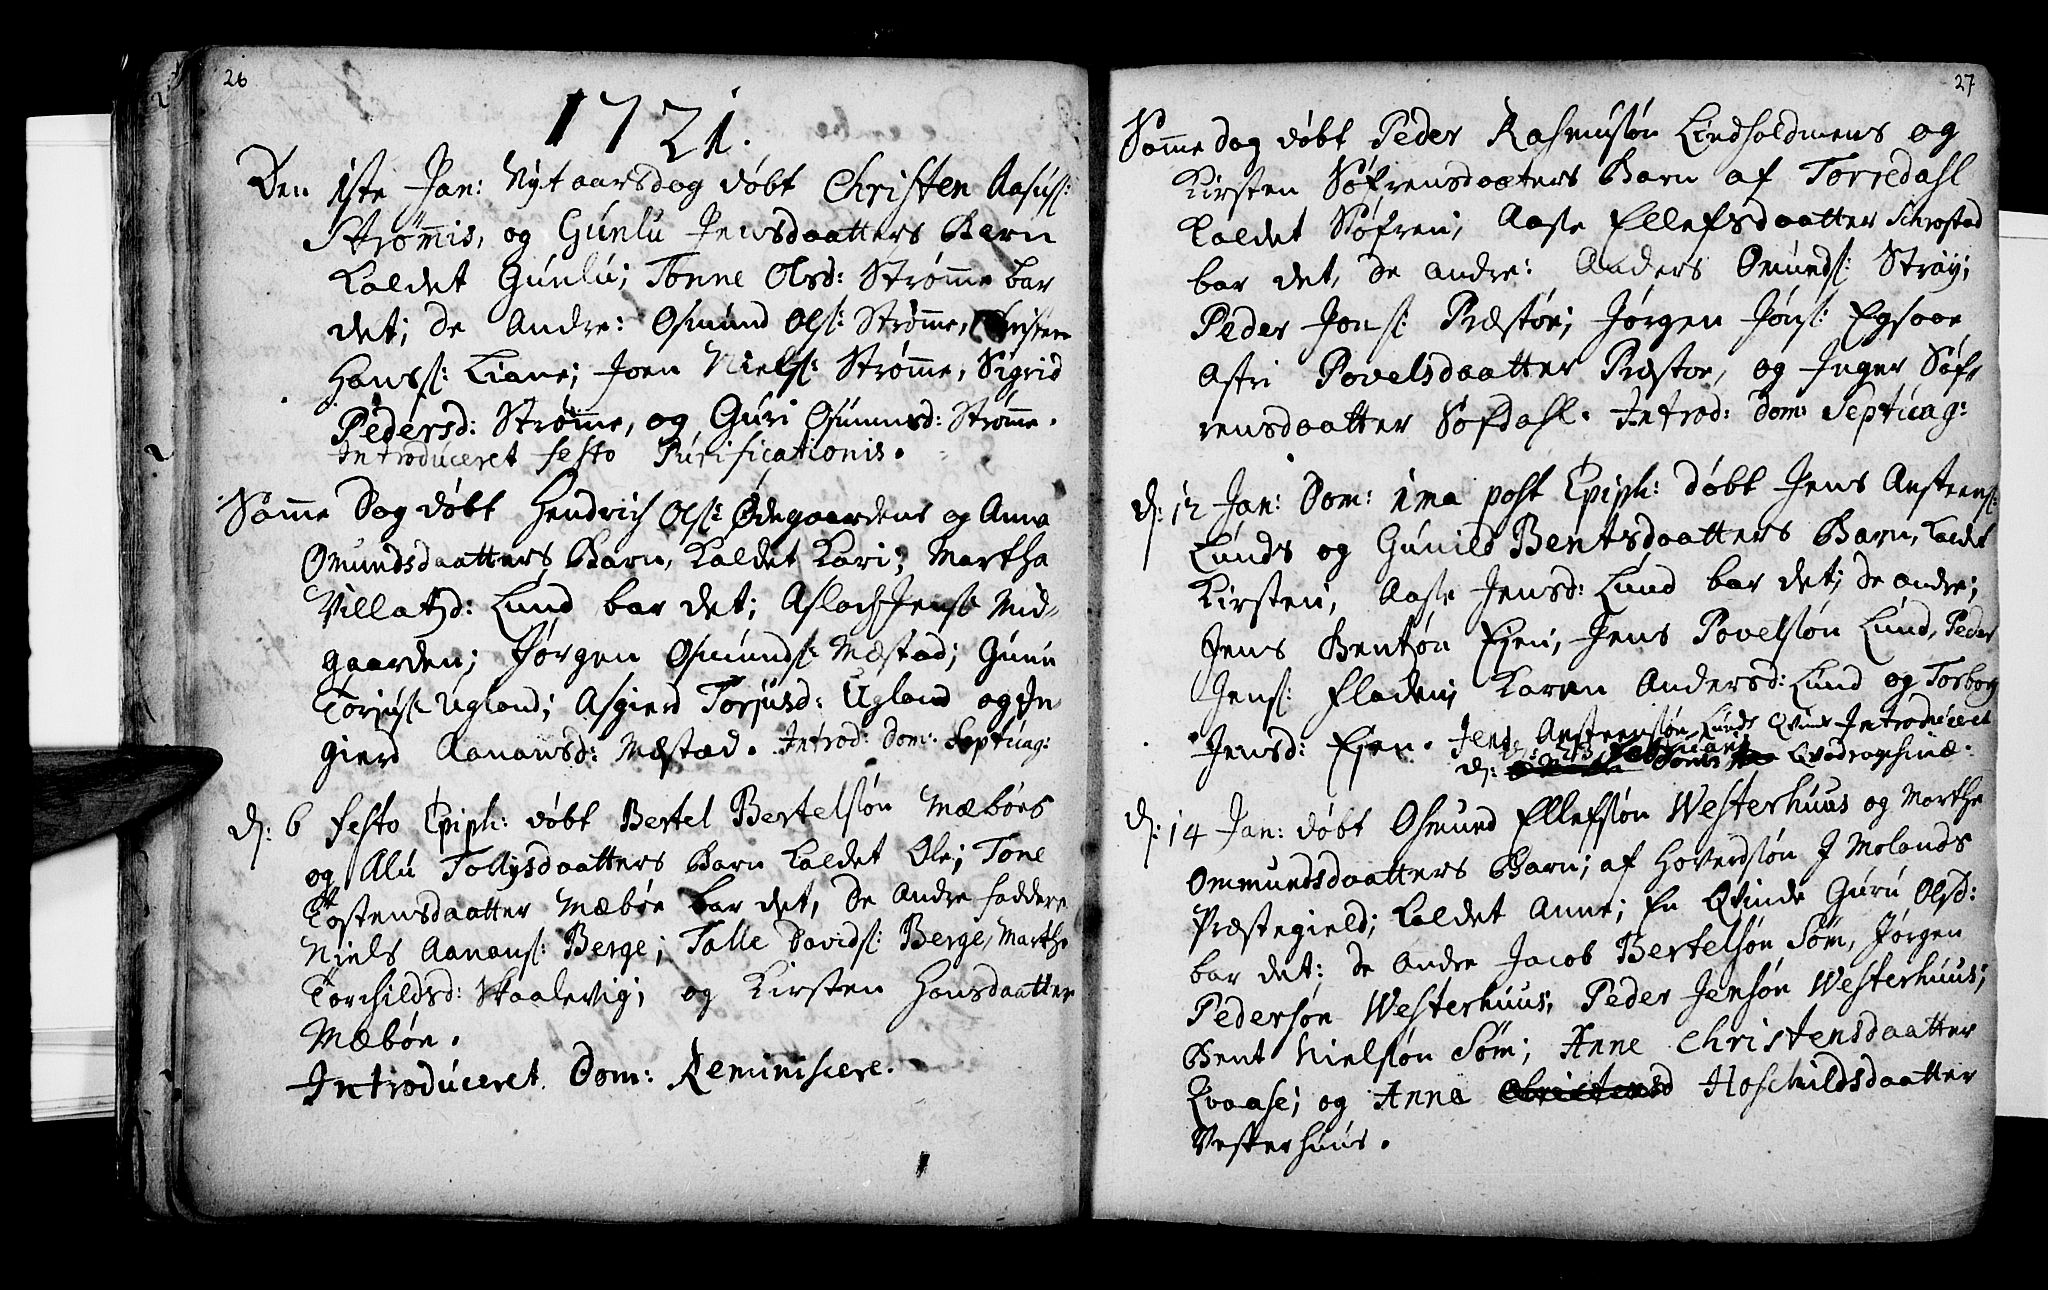 26
1721.
Den 1ste Jan: Nyt aarsdag døbt Christen Aasus:
Strømmis, og Gunlu Jensdaatters Barn
kaldet Gunlu; Tonne Olsd: Strømme bar
det; de Andre: Osmund Ols: Strømme, Christen
Hanss: Liane; Joen Niels: Strømme, Sigrid
Pedersd: Strømme, og Guri Osmunsd: Strømme.
Introduceret festo Purificationis.
Samme Dag døbt Hendrich Ols: Ødegaardens og Anna
Omundsdaatters Barn, kaldet Kari; Martha
Villatzd: Lund bar det; Aslach Jens: Mid-
gaarden; Jørgen Osmunds: Mæstad; Gunu
Torjus: Ugland; Asgierd Torjusd: Ugland og In-
gierd Aanansd: Mæstad. Introd: Dom: Septuag:
d: 6 Festo Epiph: døbt Bertel Bertelsøn Mæbøes
og Alu Tollysdaatters Barn kaldet Ole; Tone
Tostensdaatter Mæbøe bar det, de Andre faddere
Niels Aanans: Berge; Talle Davids: Berge, Marthe
Torchildsd: Skaalevig; og Kirsten Hansdaatter
Mæbøe.
Introduceret Dom: Reminiscere.
27
Samme dag døbt Peder Rasmusøn Lindholdmens og
Kirsten Søfrensdaaters Barn af Torredahl
kaldet Søfren; Aase Ellefsdaatter Schrostad
bar det, de andre: Anders Omunds: Strøy;
Peder Jons: Præstøe; Jørgen Jøns: Egsaae
Astri Povelsdaatter Præstoe, og Inger Søf-
rensdaatter Søfdahl. Introd: Dom: Septuag:
d: 12 Jan: Dom: 1ma post Epiph: døbt Jens Anstens:
Lunds og Gunild Bentsdaatters Barn, kaldet
Kirsten; Aase Jensd: Lund bar det; de andre;
Jens Bentsøn Ejen; Jens Povelsøn Lund, Peder
Jens: Fladen; Karen Andersd: Lund og Torborg
Jensd: Ejen. Jens Anstensøn Lunds Qvinde Introduceret
d: Qvadragesimæ.
d: 14 Jan: døbt Osmund Ellefsøn Westerhuus og Marthe
Ommundsdaatters Barn; af Hoverdsøn J Molands
Præstegield; kaldet Anne; En Qvinde Guru Olsd:
bar det; de andre Jacob Bertelsøn Søm, Jørgen
Pedersøn Westerhuus; Peder Jensøn Westerhuus;
Bent Nielsøn Søm; Anne Christensdaatter
Kvaase; og Anna Christensd Hoschildsdaatter
Vesterhuus.